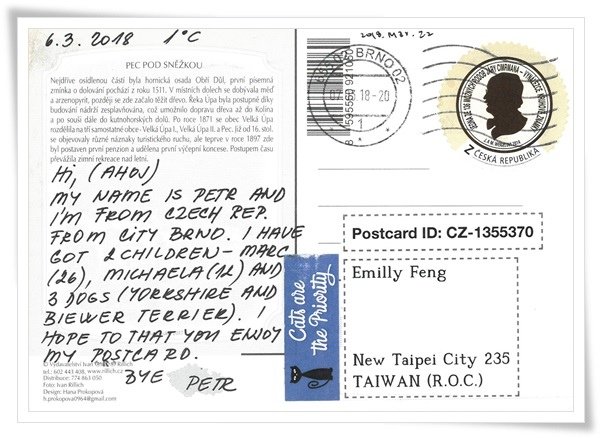 6.3.2018 1°C
2018. Mar. 22
PEC POD SNĚŽKOU
Nejdříve osídlenou částí byla hornická osada Obří Důl, první písemná
zmínka o dolování pochází z roku 1511. V místních dolech se dobývala měď
a arzenopyrit, později se zde začalo těžit dřevo. Řeka Úpa byla postupně díky
budování nádrží zesplavňována, což umožnilo dopravu dřeva až do Kolína
a po souši dále do kutnohorských dolů. Po roce 1871 se obec Velká Úpa
rozdělila na tři samostatné obce - Velká Úpa I., Velká Úpa II. a Pec. Již od 16. stol.
se objevovaly různé náznaky turistického ruchu, ale teprve v roce 1897 zde
byl postaven první penzion a udělena první výčepní koncese. Postupem času
převážila zimní rekreace nad letní.
HI, (AHOJ)
MY NAME IS PETR AND
I'M FROM CZECH REP.
FROM CITY BRNO. I HAVE
GOT 2 CHILDREN - MARC
(26), MICHAELA (12) AND
3 DOGS (YORKSHIRE AND
BIEWER TERRIER). I
HOPE TO THAT YOU ENJOY
MY POSTCARD.
BYE PETR
© Vydavatelství Ivan Rillich
tel.: 602 441 408, www.rillich.cz
Distribuce: 774 863 050
Foto: Ivan Rillich
Design: Hana Prokopová
h.prokopova0964@gmail.com
BRNO 02
18-20
1
Z ČESKÁ REPUBLIKA
Postcard ID: CZ-1355370
Cats are
the Priority
Emilly Feng
New Taipei City 235
TAIWAN (R.O.C.)